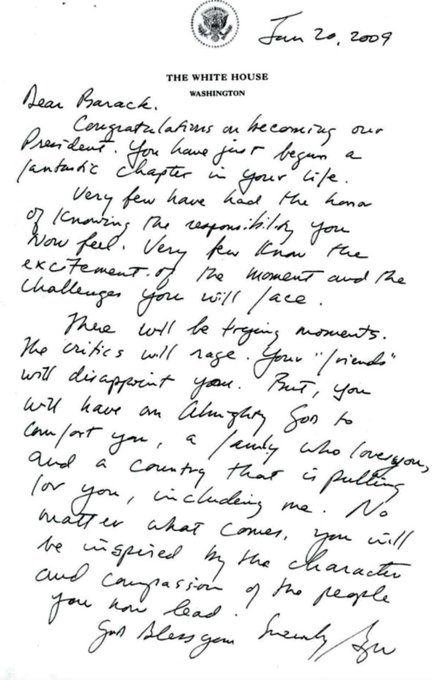 Jan 20, 2009
THE WHITE HOUSE
WASHINGTON
Dear Barack.
Congratulations on becoming our
President. You have just begun a
fantastic chapter in your life.
Very few have had the honor
of knowing the responsibility you
now feel. Very few know the
excitement of the moment and the
challenges you will face.
There will be trying moments.
The critics will rage. Your "friends"
will disappoint you. But, you
will have an Almighty God to
comfort you, a family who loves you,
and a country that is pulling
for you, including me. No
matter what comes, you will
be inspired by the character
and compassion of the people
you now lead.
God bless you
Sincerely,